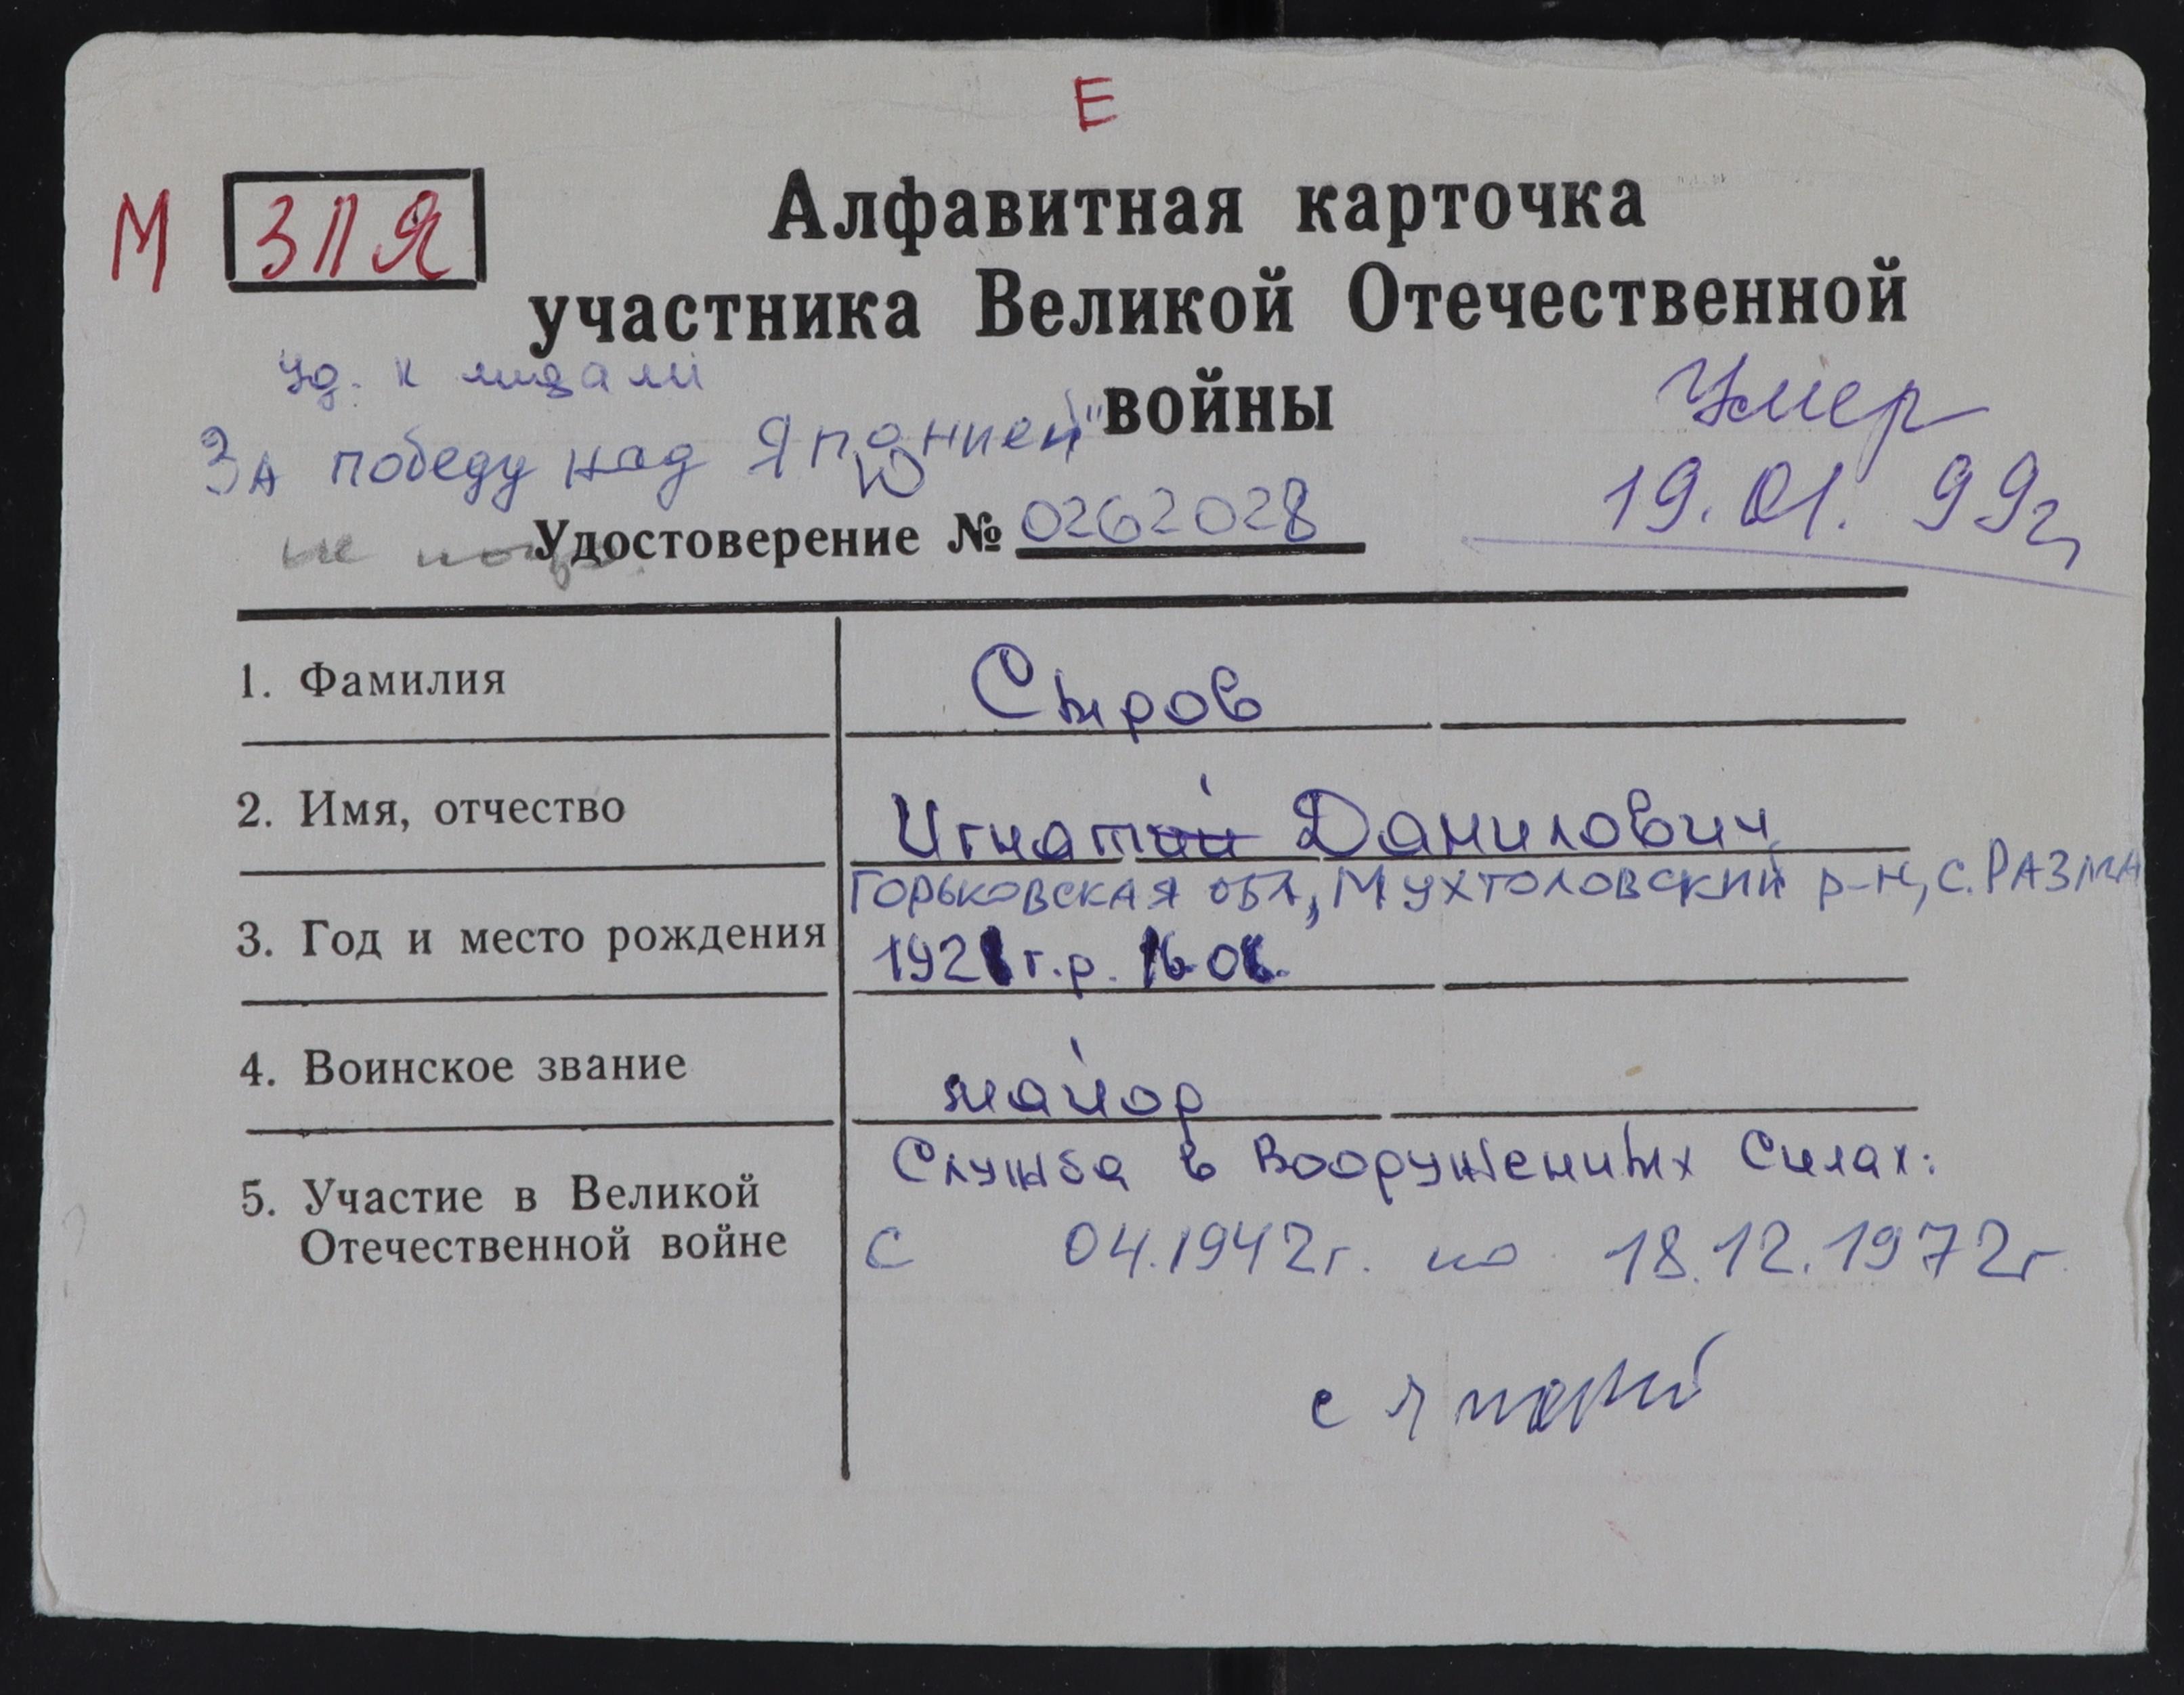 Е
М ЗПЯ
Алфавитная карточка
участника Великой Отечественной
войны
Уд. к медали
За победу над Японией"
Умер
19.01.99г.
Ю
Удостоверение № 0262028
не
1. Фамилия Сыров
2. Имя, отчество Игнатий Данилович
Горьковская обл, Мухтоловский р-н, с. Разма
3. Год и место рождения 1921 г.р. 16.01.
4. Воинское звание майор
5. Участие в Великой Отечественной войне
Служба в Вооруженных Силах:
с 04.1942г. по 18.12.1972г
с Японией